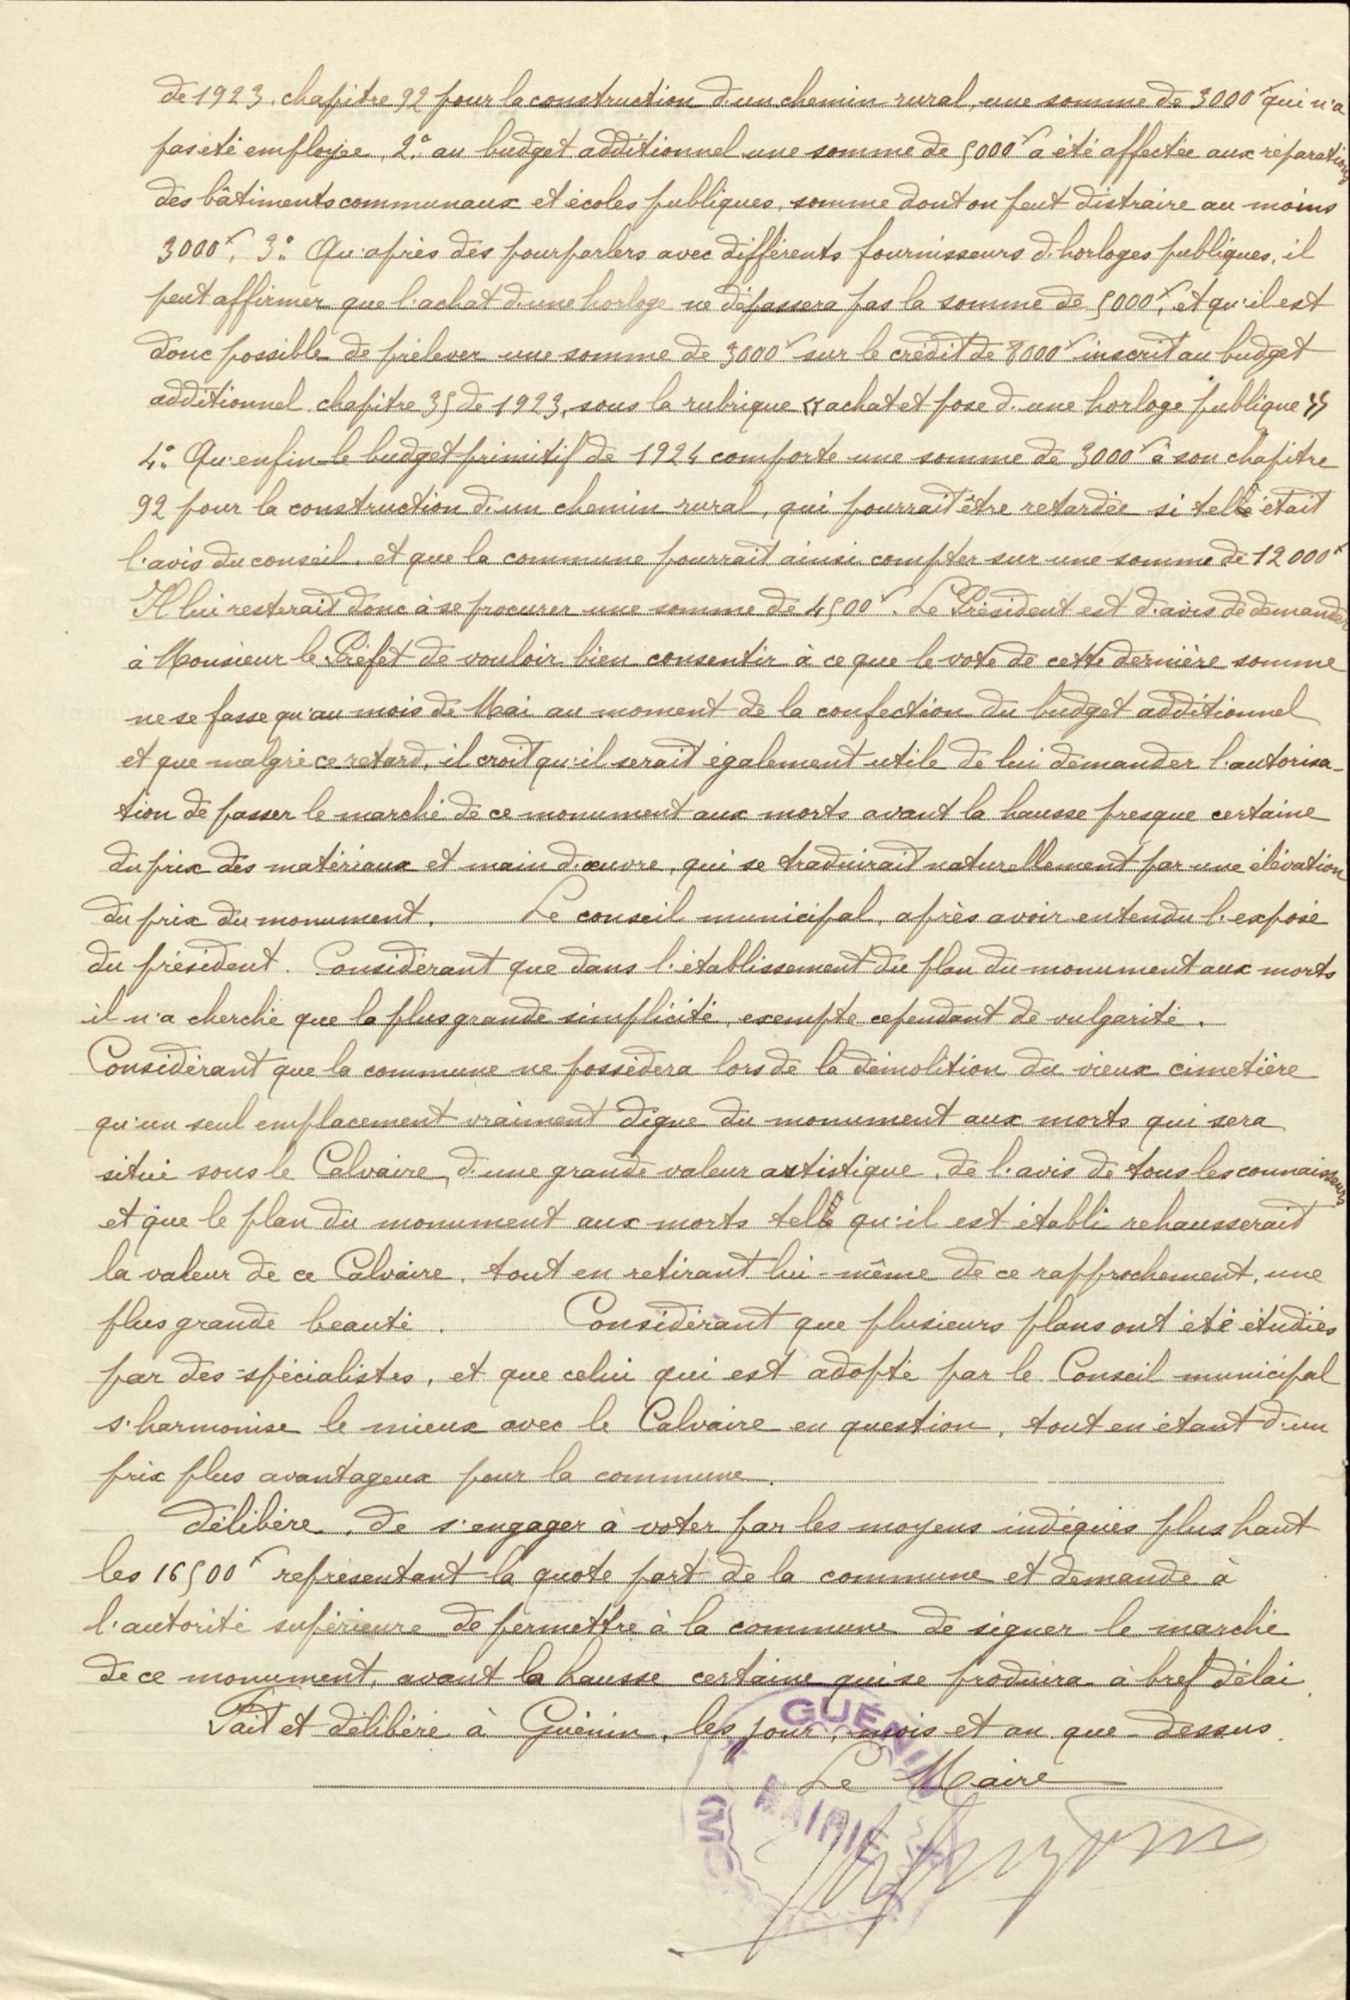 de 1923, chapitre 92 pour la construction d'un chemin rural, une somme de 3000 f qui n'a
pas été employée, 2° au budget additionnel une somme de 5000 f a été affectée aux réparations
des bâtiments communaux et écoles publiques, somme dont on peut distraire au moins
3000 f, 3° Qu'après des pourparlers avec différents fournisseurs d'horloges publiques, il
peut affirmer que l'achat d'une horloge ne dépassera pas la somme de 5000 f, et qu'il est
donc possible de prélever une somme de 3000 f sur le crédit de 8000 f inscrit au budget
additionnel chapitre 35 de 1923, sous la rubrique « achat et pose d'une horloge publique »
4° Qu'enfin le budget primitif de 1924 comporte une somme de 3000 f à son chapitre
92 pour la construction d'un chemin rural, qui pourrait être retardée si telle était
l'avis du conseil, et que la commune pourrait ainsi compter sur une somme de 12 000 f
Il lui resterait donc à se procurer une somme de 4500 f. Le Président est d'avis de demander
à Monsieur le Préfet de vouloir bien consentir à ce que le vote de cette dernière somme
ne se fasse qu'au mois de Mai au moment de la confection du budget additionnel
et que malgré ce retard, il croit qu'il serait également utile de lui demander l'autorisa-
tion de passer le marché de ce monument aux morts avant la hausse presque certaine
du prix des matériaux et main d'œuvre, qui se traduirait naturellement par une élévation
du prix du monument. Le conseil municipal, après avoir entendu l'exposé
du président. Considérant que dans l'établissement du plan du monument aux morts
il n'a cherché que la plus grande simplicité, exempte cependant de vulgarité.
Considérant que la commune ne possèdera lors de la démolition du vieux cimetière
qu'un seul emplacement vraiment digne du monument aux morts qui sera
situé sous le Calvaire, d'une grande valeur artistique, de l'avis de tous les connaisseurs
et que le plan du monument aux morts tel qu'il est établi rehausserait
la valeur de ce Calvaire, tout en retirant lui-même de ce rapprochement, une
plus grande beauté. Considérant que plusieurs plans ont été étudiés
par des spécialistes, et que celui qui est adopté par le Conseil municipal
s'harmonise le mieux avec le Calvaire en question, tout en étant d'un
prix plus avantageux pour la commune.
Délibère, de s'engager à voter par les moyens indiqués plus haut
les 16500 f représentant la quote part de la commune et demande à
l'autorité supérieure de permettre à la commune de signer le marché
de ce monument, avant la hausse certaine qui se produira à bref délai.
Fait et délibéré à Guénin, les jour, mois et an que dessus.
Le Maire
GUÉNIN
MAIRIE